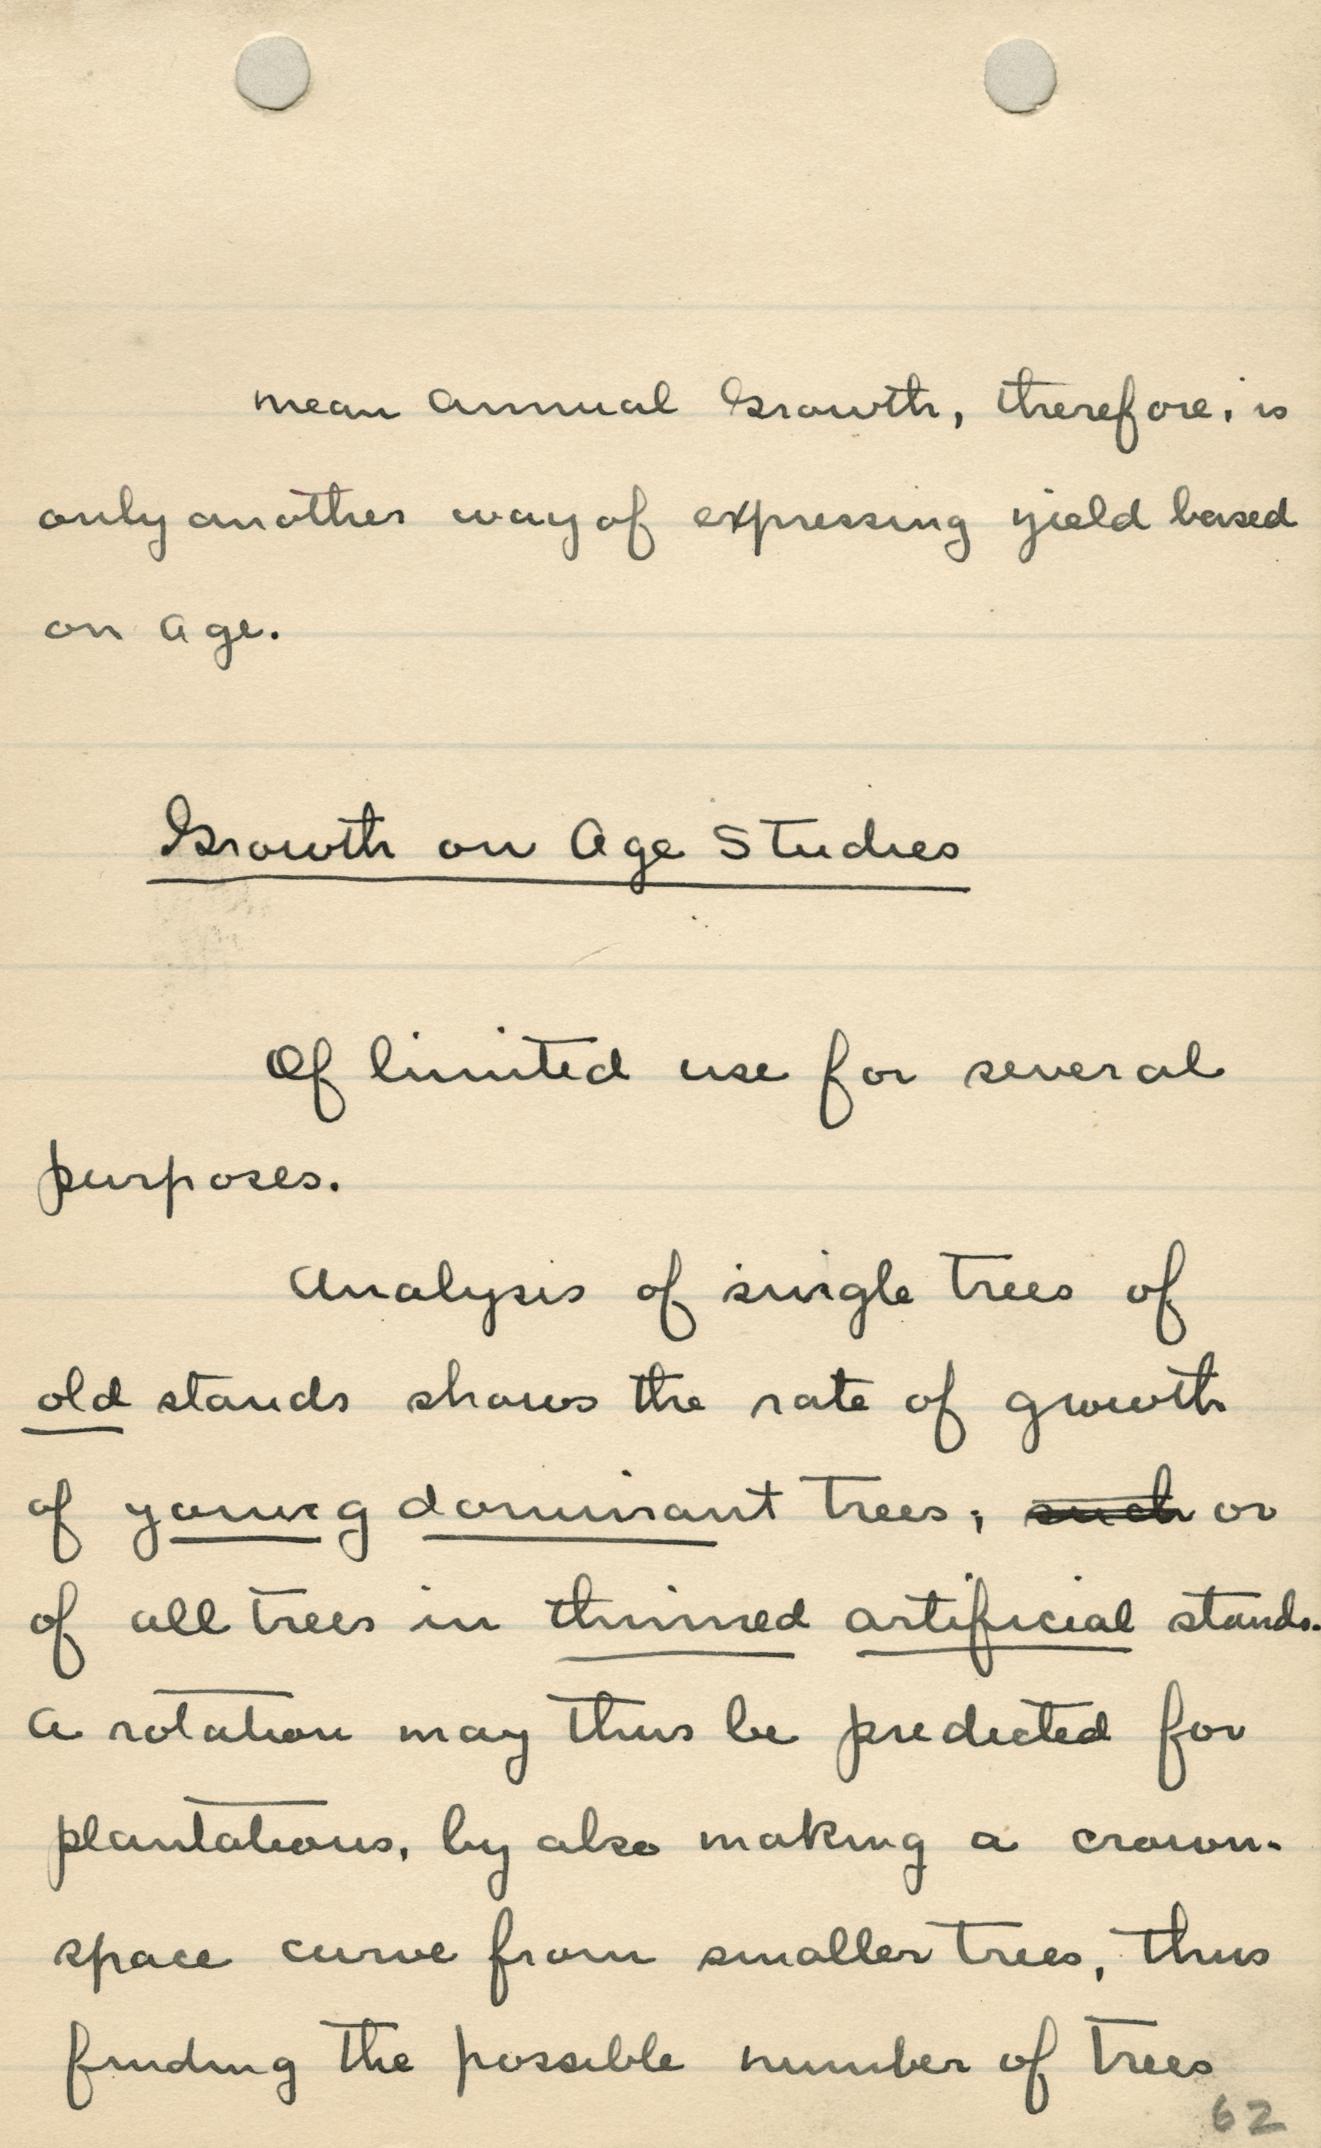 mean annual Growth, therefore, is
only another way of expressing yield based
on age.
Growth on Age Studies
Of limited use for several
purposes.
Analysis of single trees of
old stands shows the rate of growth
of young dominant trees; such or
of all trees in thinned artificial stands.
A rotation may thus be predicted for
plantations, by also making a crown-
space curve from smaller trees, thus
finding the possible number of trees
62